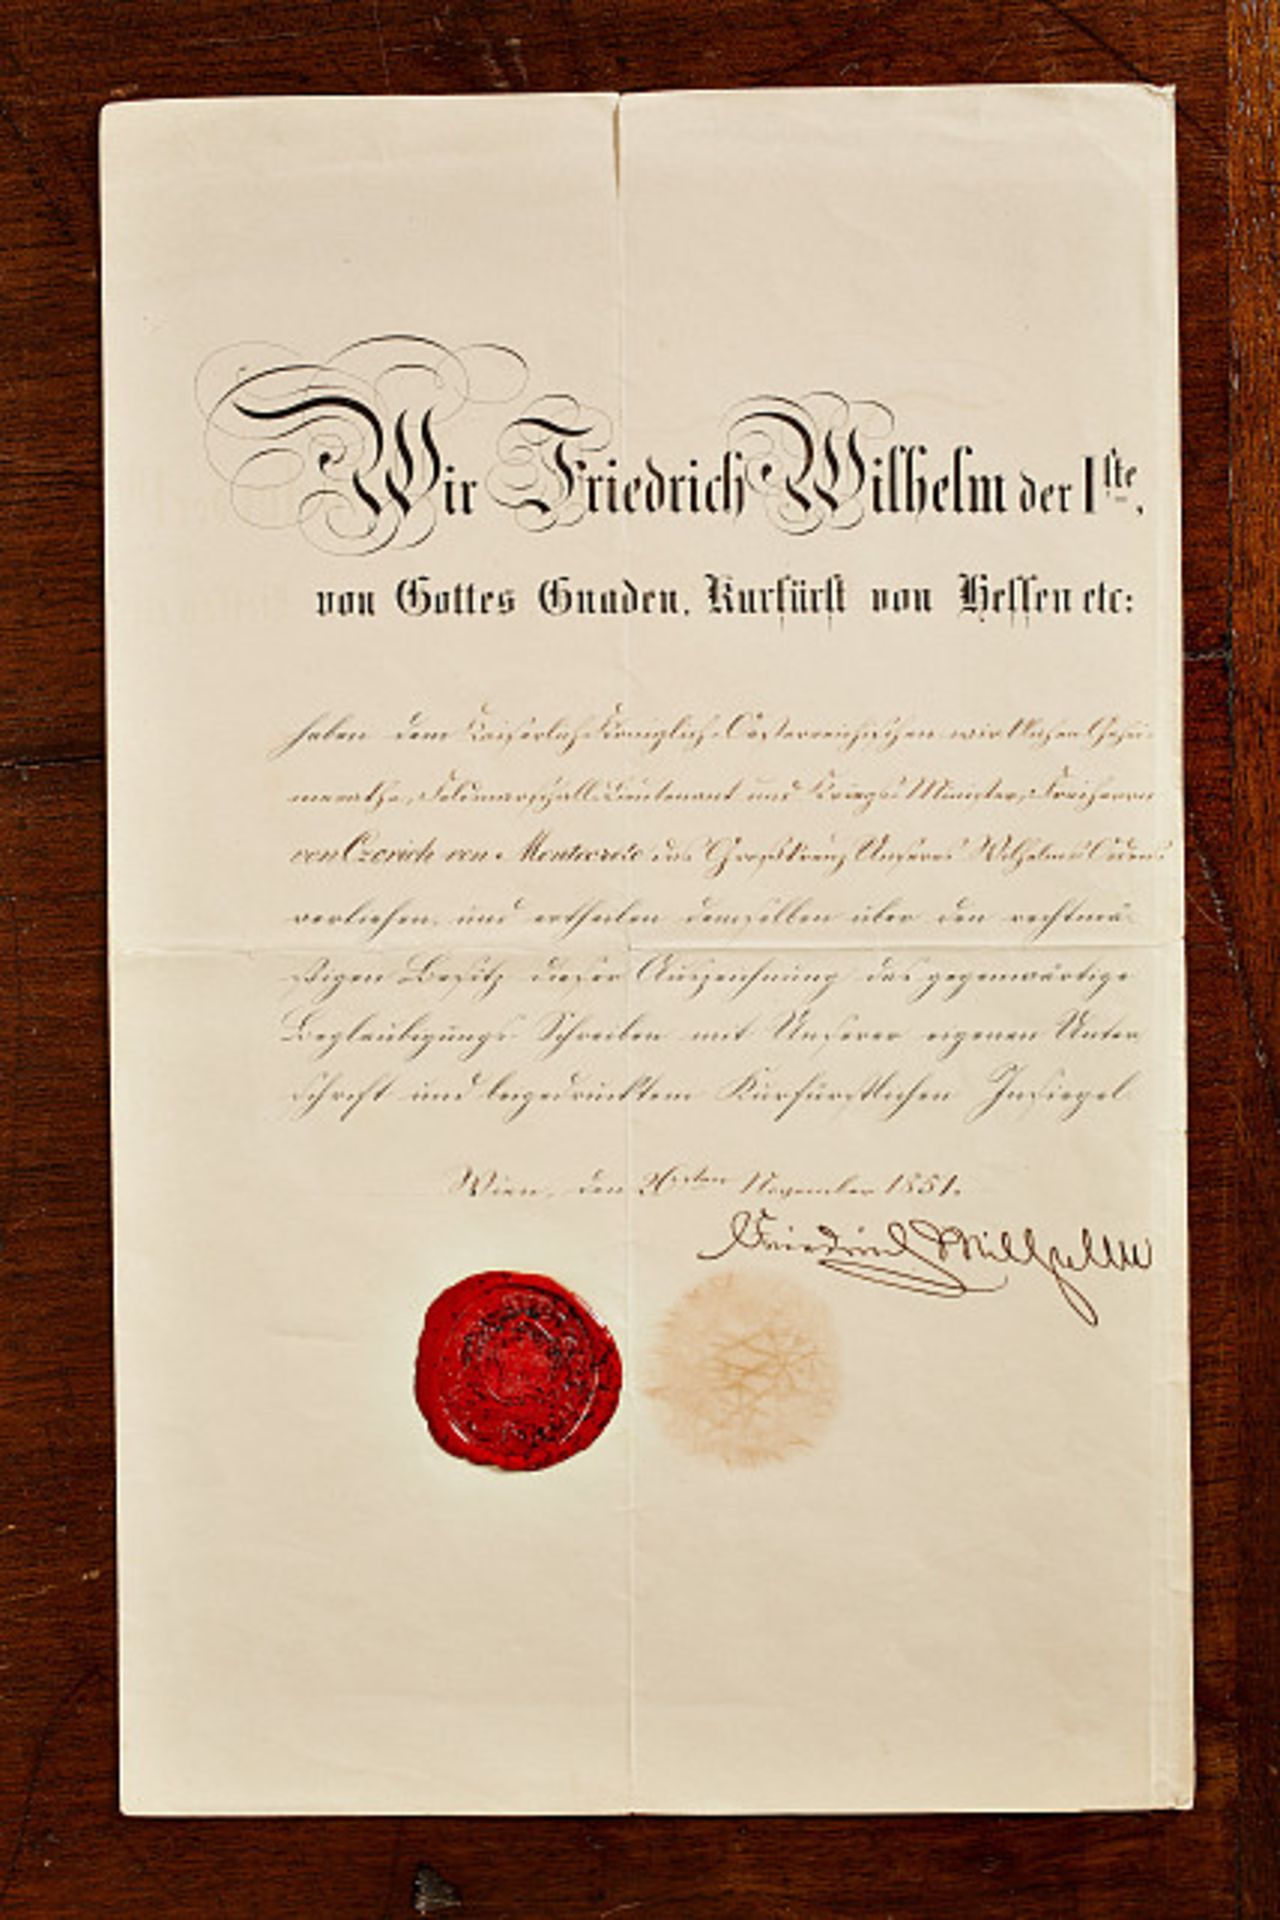 Wir Friedrich Wilhelm der Iste,
von Gottes Gnaden, Kurfürst von Hessen etc:
haben dem Kaiserlich-Königlich-Oesterreichischen wirklichen Gehei-
menrathe, Feldmarschall-Lieutenant und Kriegs-Minister, Freiherrn
von Czorich von Montecreto das Großkreuz Unseres Wilhelms-Ordens
verliehen, und ertheilen demselben über den rechtmä-
ßigen Besitz dieser Auszeichnung das gegenwärtige
Beglaubigungs-Schreiben mit Unserer eigenen Unter
schrift und beigedrucktem Kurfürstlichen Insiegel.
Wien, den November 1851.
Friedrich Wilhelm